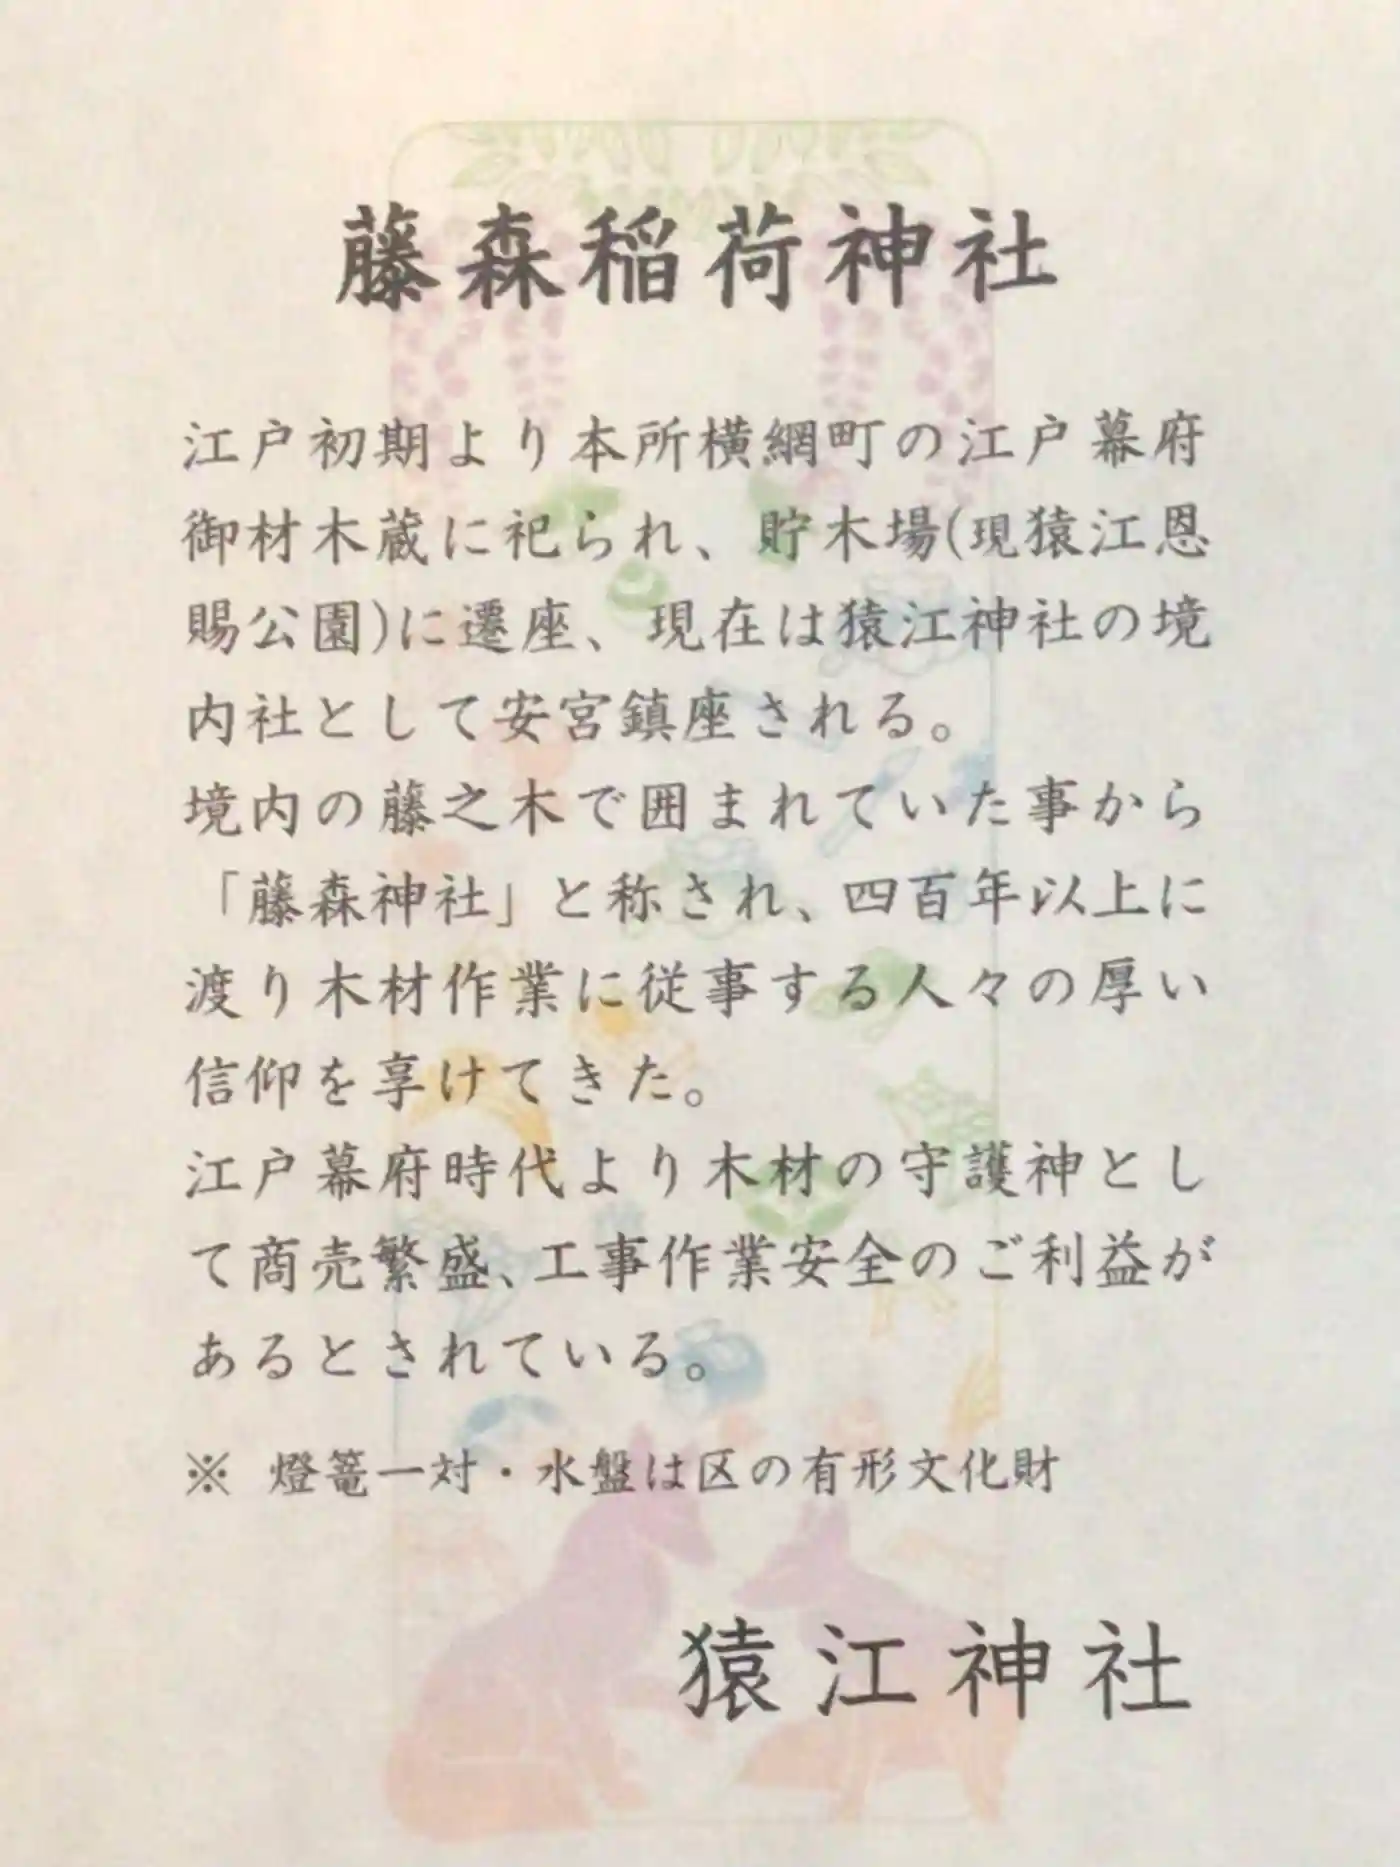 藤森稲荷神社
江戸初期より本所横網町の江戸幕府
御材木蔵に祀られ、貯木場(現猿江恩
賜公園)に遷座、現在は猿江神社の境
内社として安宮鎮座される。
境内の藤之木で囲まれていた事から
「藤森神社」と称され、四百年以上に
渡り木材作業に従事する人々の厚い
信仰を享けてきた。
江戸幕府時代より木材の守護神とし
て商売繁盛、工事作業安全のご利益が
あるとされている。
※ 燈篭一対・水盤は区の有形文化財
猿江神社